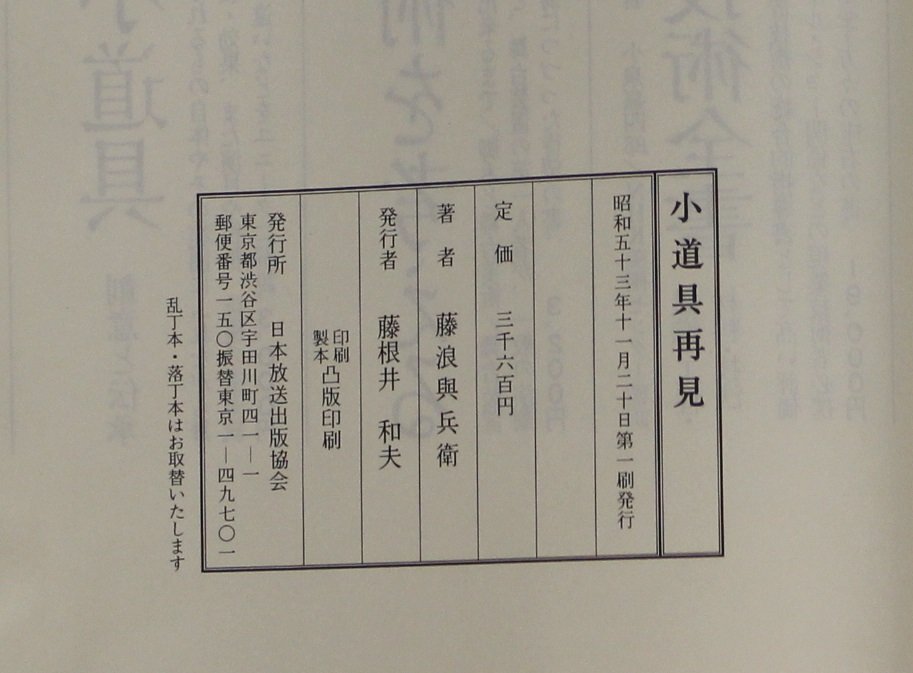 小道具再見
昭和五十三年十一月二十日第一刷発行
定価 三千六百円
著者 藤浪與兵衛
発行者 藤根井和夫
印刷
製本 凸版印刷
発行所 日本放送出版協会
東京都渋谷区宇田川町四一―一
郵便番号一五〇振替東京一―四九七〇一
乱丁本・落丁本はお取替いたします